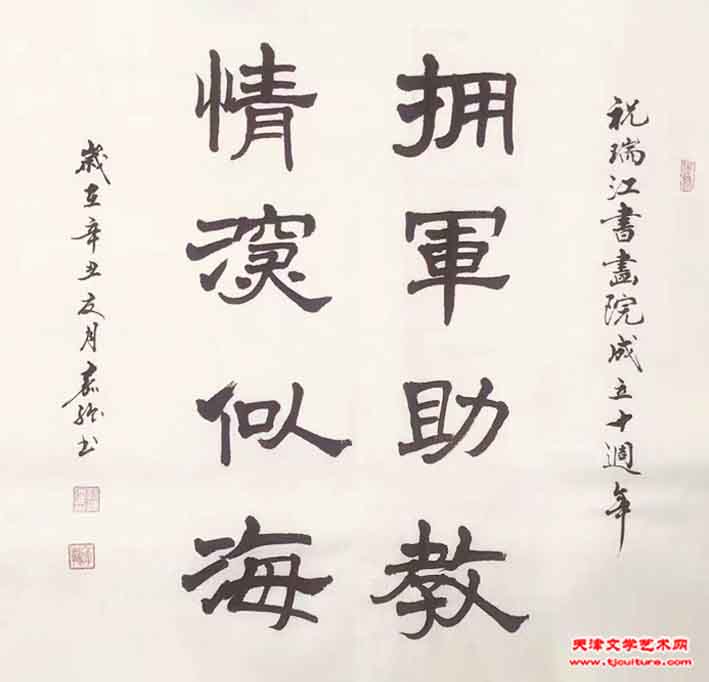 祝瑞江書畫院成立十週年
拥軍助教
情深似海
歲在辛丑月書
天津文学艺术网
www.tjculture.com